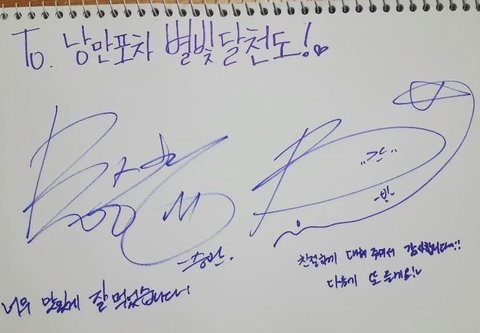 To. 낭만포차 별빛달천도!
"간"
-빈-
-승관-
친절하게 대해 주셔서 감사합니다!!
너무 맛있게 잘 먹었습니다!
다음에 또 올게요!